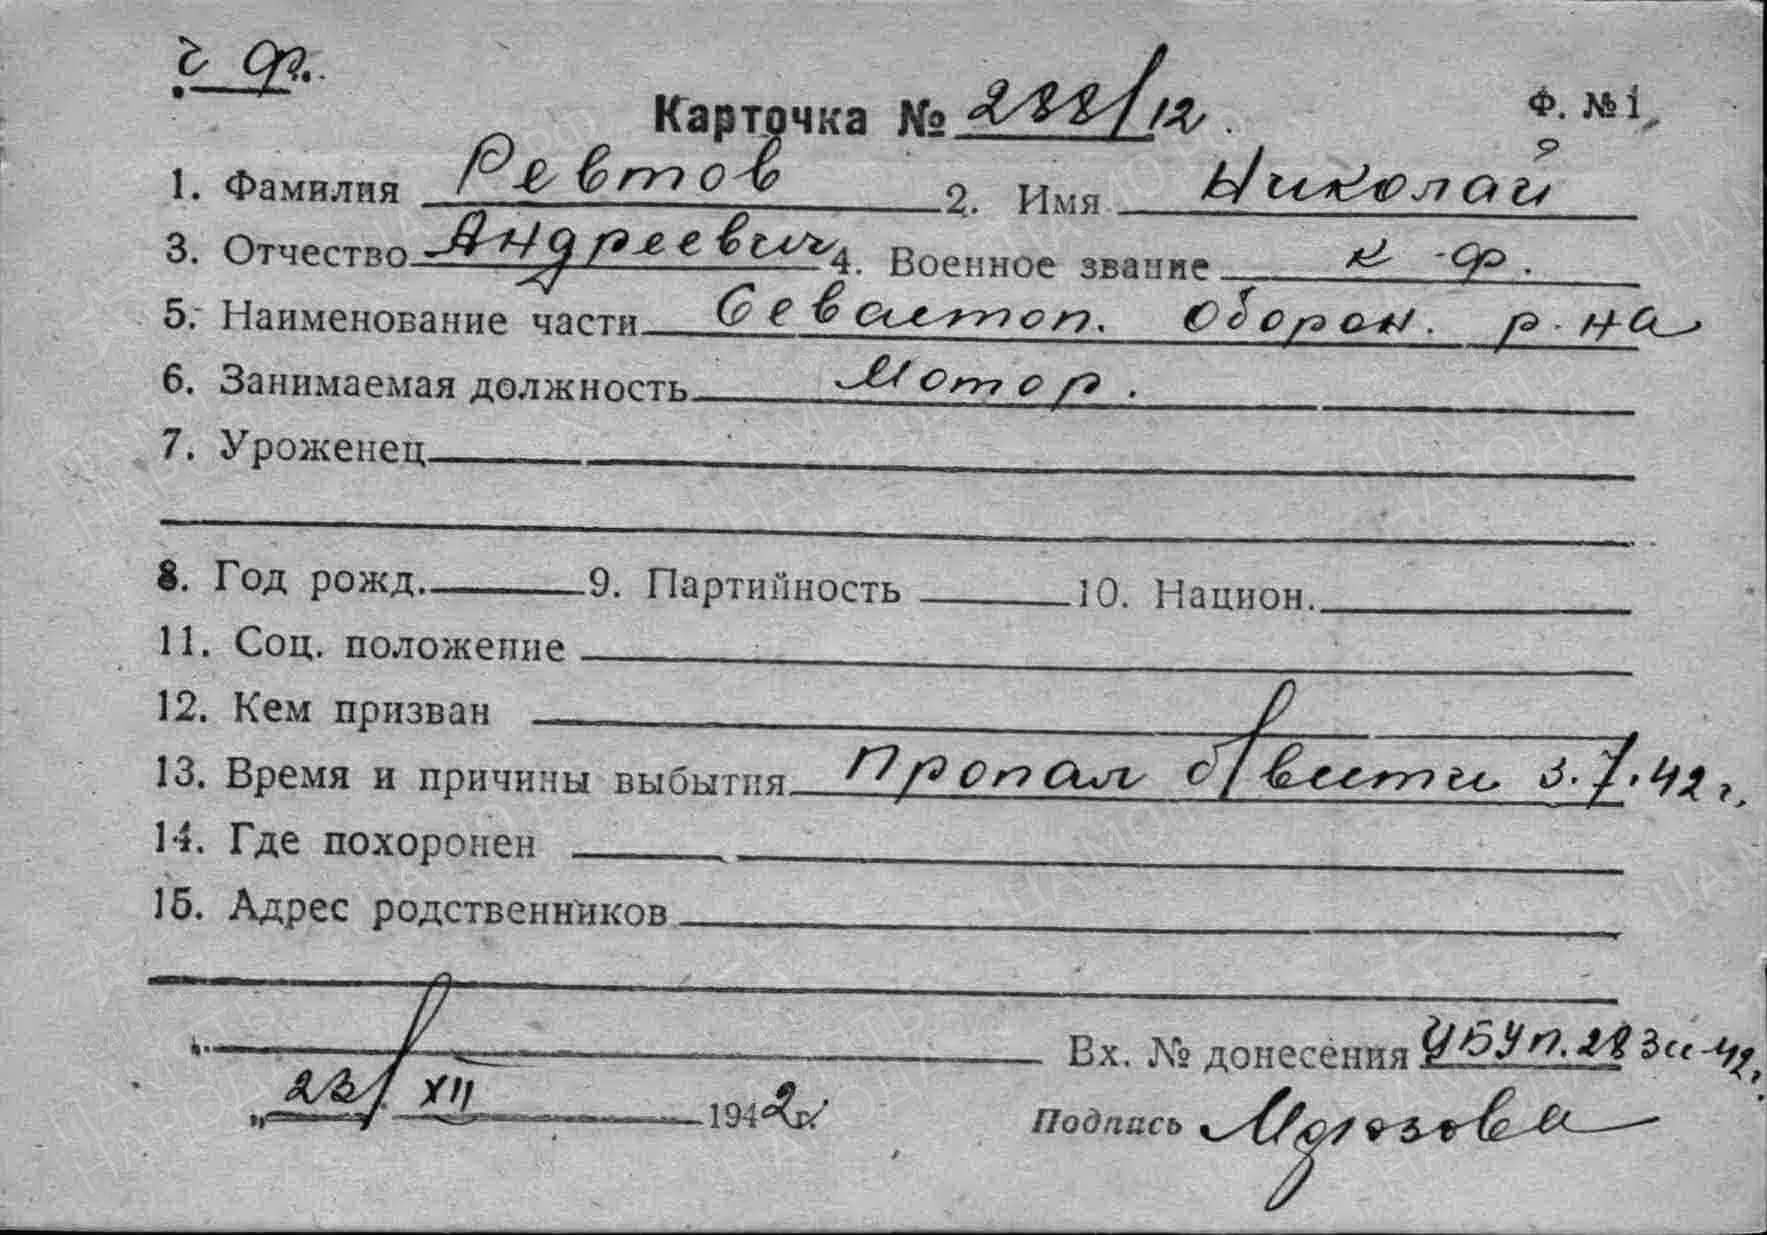 ч ф.
Карточка № 288/12. Ф. №1
1. Фамилия Ревтов 2. Имя Николай
3. Отчество Андреевич 4. Военное звание к-ф.
5. Наименование части Севастоп. Оборон. р-на
6. Занимаемая должность Мотор.
7. Уроженец
8. Год рожд. 9. Партийность 10. Национ.
11. Соц. положение
12. Кем призван
13. Время и причины выбытия Пропал б/вести 3.7.42 г.
14. Где похоронен
15. Адрес родственников
Вх. № донесения УБУ п. 28
„23/ XII 1942 г.
Подпись Морозова